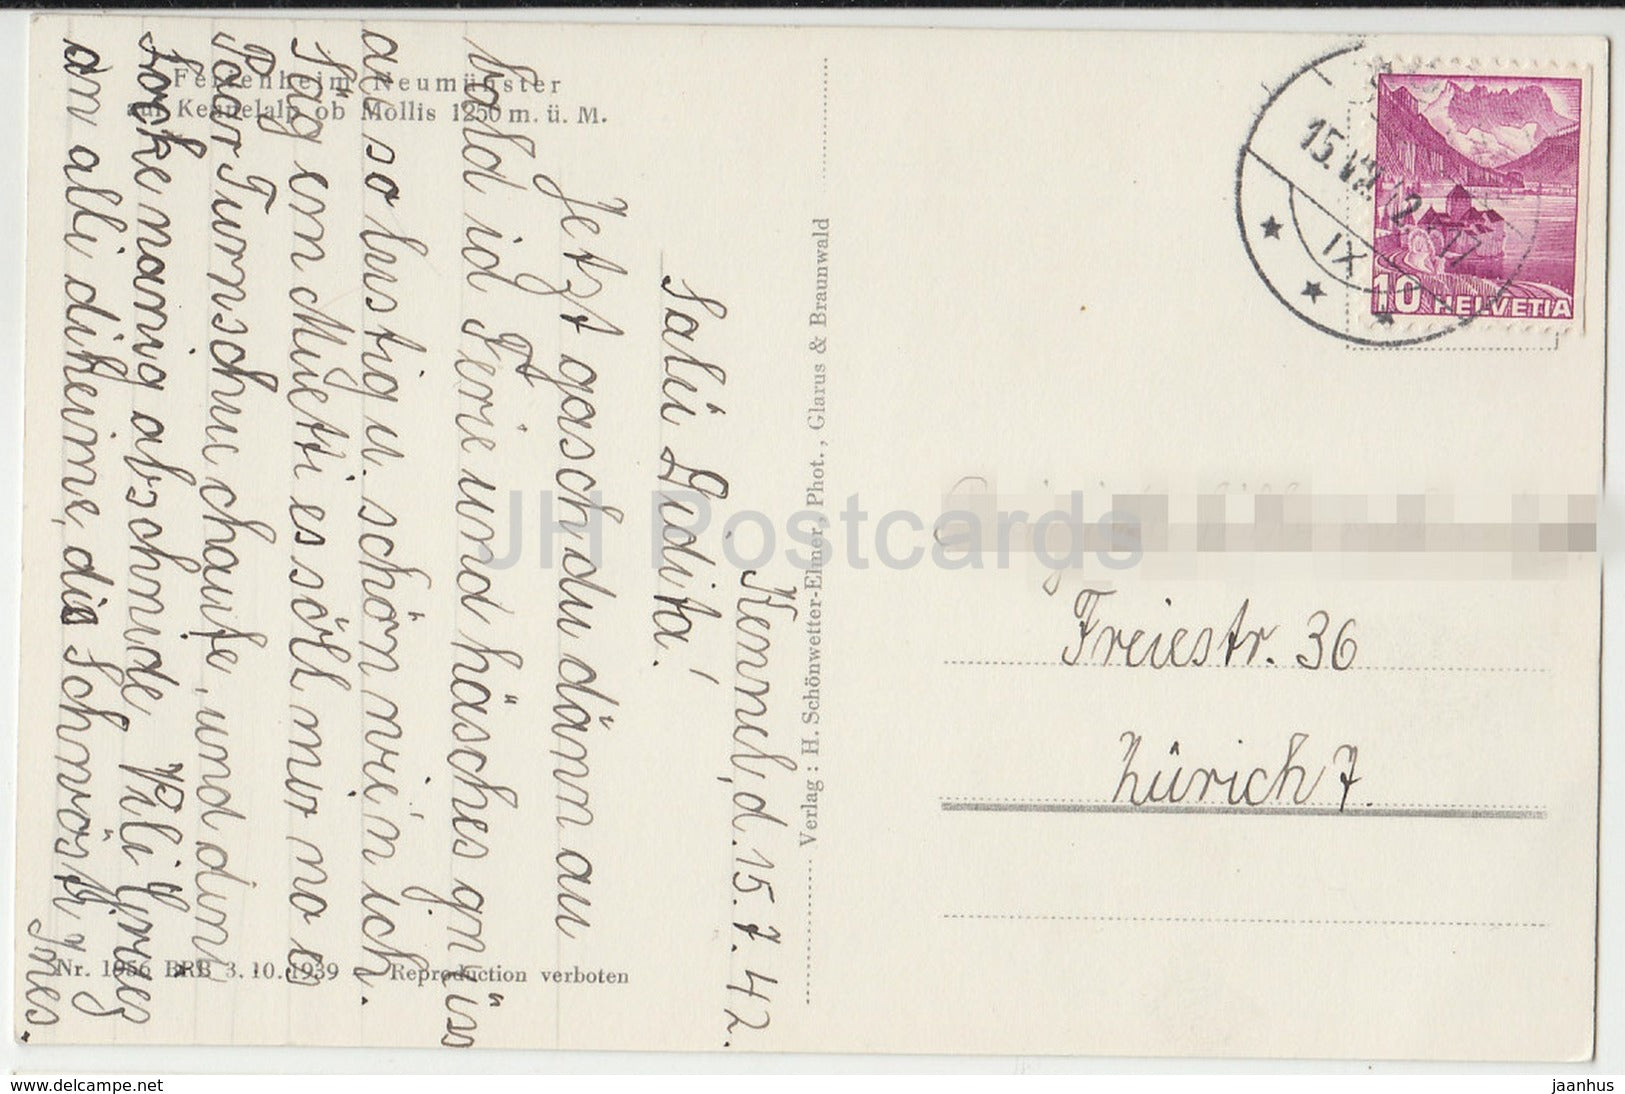 Ferienheim Neumünster
auf Kennelalp ob Mollis 1250 m. ü. M.
Kennel, d. 15. 7. 42.
Sali Dadita!
Jetzt gasch du dänn au
bald id Ferie und häsches gwüss
au so lustig u. schön wien ich.
Säg em Muetti es söll mir no e
Paar Turnschue chaufe, und dini
Locke nanig abschnide. Vili Grües
an alli diheime, dis Schwösti
Ines.
Nr. 1956 BRB 3.10.1939 Reproduction verboten
Verlag : H. Schönwetter-Elmer, Phot., Glarus & Braunwald
15. VII. 42
IX
10 HELVETIA
Freiestr. 36
Zürich 7.
JH Postcards
www.delcampe.net
jaanhus